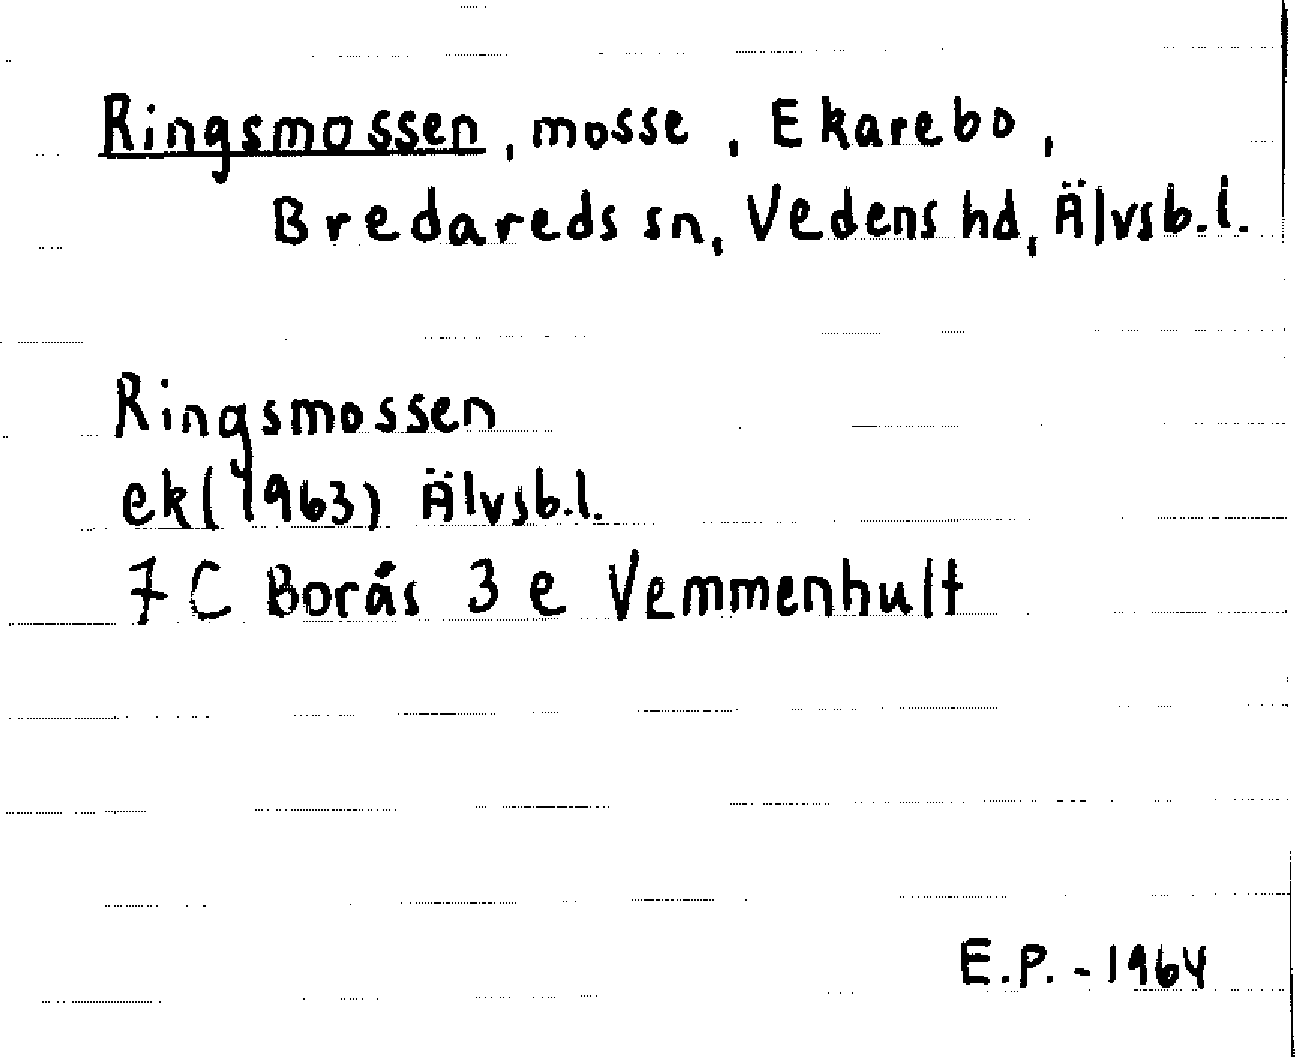 Ringsmossen, mosse, Ekarebo,
Bredareds sn, Vedens hd, Älvsb.l.
Ringsmossen
ek (1963) Älvsb.l.
7 C Borås 3 e Vemmenhult
E.P. - 1964